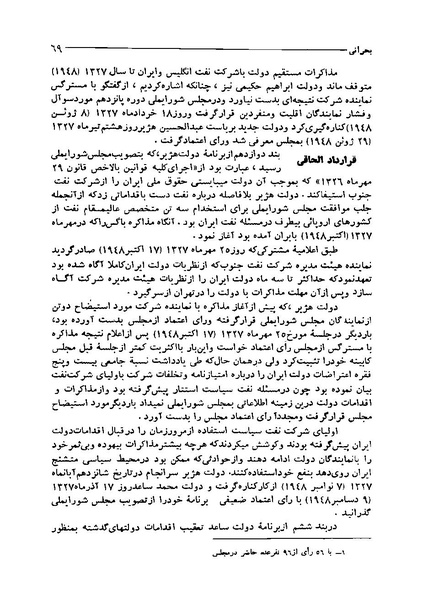 بحرانی ۶۹
مذاکرات مستقیم دولت باشرکت نفت انگلیس وایران تا سال ۱۳۲۷ (۱۹۴۸)
متوقف ماند ودولت ابراهیم حکیمی نیز ، چنانکه اشاره‌کردیم ، ازگفتگو با مسترگس
نماینده شرکت نتیجه‌ای بدست نیاورد ودرمجلس شورایملی دوره پانزدهم موردسوآل
وفشار نمایندگان اقلیت ومنفردین قرارگرفت وروز۱۸ خردادماه ۱۳۲۷ (۸ ژوئن
۱۹۴۸)کناره‌گیری‌کرد ودولت جدید بریاست عبدالحسین هژیرروزهشتم‌تیرماه ۱۳۲۷
(۲۹ ژوئن ۱۹۴۸) بمجلس معرفی شد ورأی اعتمادگرفت .
قرارداد الحاقی بند دوازدهم‌ازبرنامهٔ دولت‌هژیر،که بتصویب‌مجلس‌شورایملی
رسید ، عبارت بود از «اجرای‌کلیه قوانین بالاخص قانون ۲۹
مهرماه ۱۳۲۶» که بموجب آن دولت میبایستی حقوق ملی ایران را ازشرکت نفت
جنوب استیفاکند. دولت هژیر بلافاصله درباره نفت دست باقداماتی زدکه ازآنجمله
جلب موافقت مجلس شورایملی برای استخدام سه تن متخصص عالیمقام نفت از
کشورهای اروپائی بیطرف درمسئله نفت ایران بود . آنگاه مذاکره باگس‌راکه درمهرماه
۱۳۲۷ (اکتبر۱۹۴۸) بایران آمده بود آغاز نمود .
طبق اعلامیهٔ مشترکی‌که روز۲۵ مهرماه ۱۳۲۷ (۱۷ اکتبر۱۹۴۸) صادرگردید
نماینده هیئت مدیره شرکت نفت جنوب‌که ازنظریات دولت ایران‌کاملا آگاه شده بود
تعهدنمودکه حداکثر تا سه ماه دولت ایران را ازنظریات هیئت مدیره شرکت آگاه
سازد وپس ازآن مهلت مذاکرات با دولت را درتهران ازسرگیرد .
دولت هژیر ،که پیش ازآغاز مذاکره با نماینده شرکت مورد استیضاح دوتن
ازنمایندگان مجلس شورایملی قرارگرفته ورأی اعتماد ازمجلس بدست آورده بود،
باردیگر درجلسهٔ مورخ۲۵ مهرماه ۱۳۲۷ (۱۷ اکتبر۱۹۴۸) پس ازاعلام نتیجه مذاکره
با مسترگس ازمجلس رأی اعتماد خواست واین‌بار بااکثریت کمتر ازجلسهٔ قبل مجلس
کابینه خودرا تثبیت‌کرد ولی درهمان حال‌که طی یادداشت نسبة جامعی بیست وپنج
فقره اعتراضات دولت ایران را درباره امتیازنامه وتخلفات شرکت باولیای شرکت‌نفت
بیان نموده بود چون درمسئله نفت سیاست استتار پیش‌گرفته بود وازمذاکرات و
اقدامات دولت درین زمینه اطلاعاتی بمجلس شورایملی نمیداد باردیگرمورد استیضاح
مجلس قرارگرفت ومجدداًرأی اعتماد مجلس را بدست آورد .
اولیای شرکت نفت سیاست استفاده ازمرورزمان را درقبال اقدامات‌دولت
ایران پیش‌گرفته بودند وکوشش میکردندکه هرچه بیشترمذاکرات بیهوده وبی‌ثمرخود
را بانمایندگان دولت ادامه دهند وازحوادثی‌که ممکن بود درمحیط سیاسی متشنج
ایران روی‌دهد بنفع خوداستفاده‌کنند. دولت هژیر سرانجام درتاریخ شانزدهم‌آبانماه
۱۳۲۷ (۷ نوامبر ۱۹۴۸) ازکارکناره‌گرفت و دولت محمد ساعدروز ۱۷ آذرماه۱۳۲۷
(۹ دسامبر۱۹۴۸) با رأی اعتماد ضعیفی برنامهٔ خودرا ازتصویب مجلس شورایملی
گذراند .
دربند ششم ازبرنامهٔ دولت ساعد تعقیب اقدامات دولتهای‌گذشته بمنظور
۱– با ۵۶ رأی از۹۶ نفرعده حاضر درمجلس